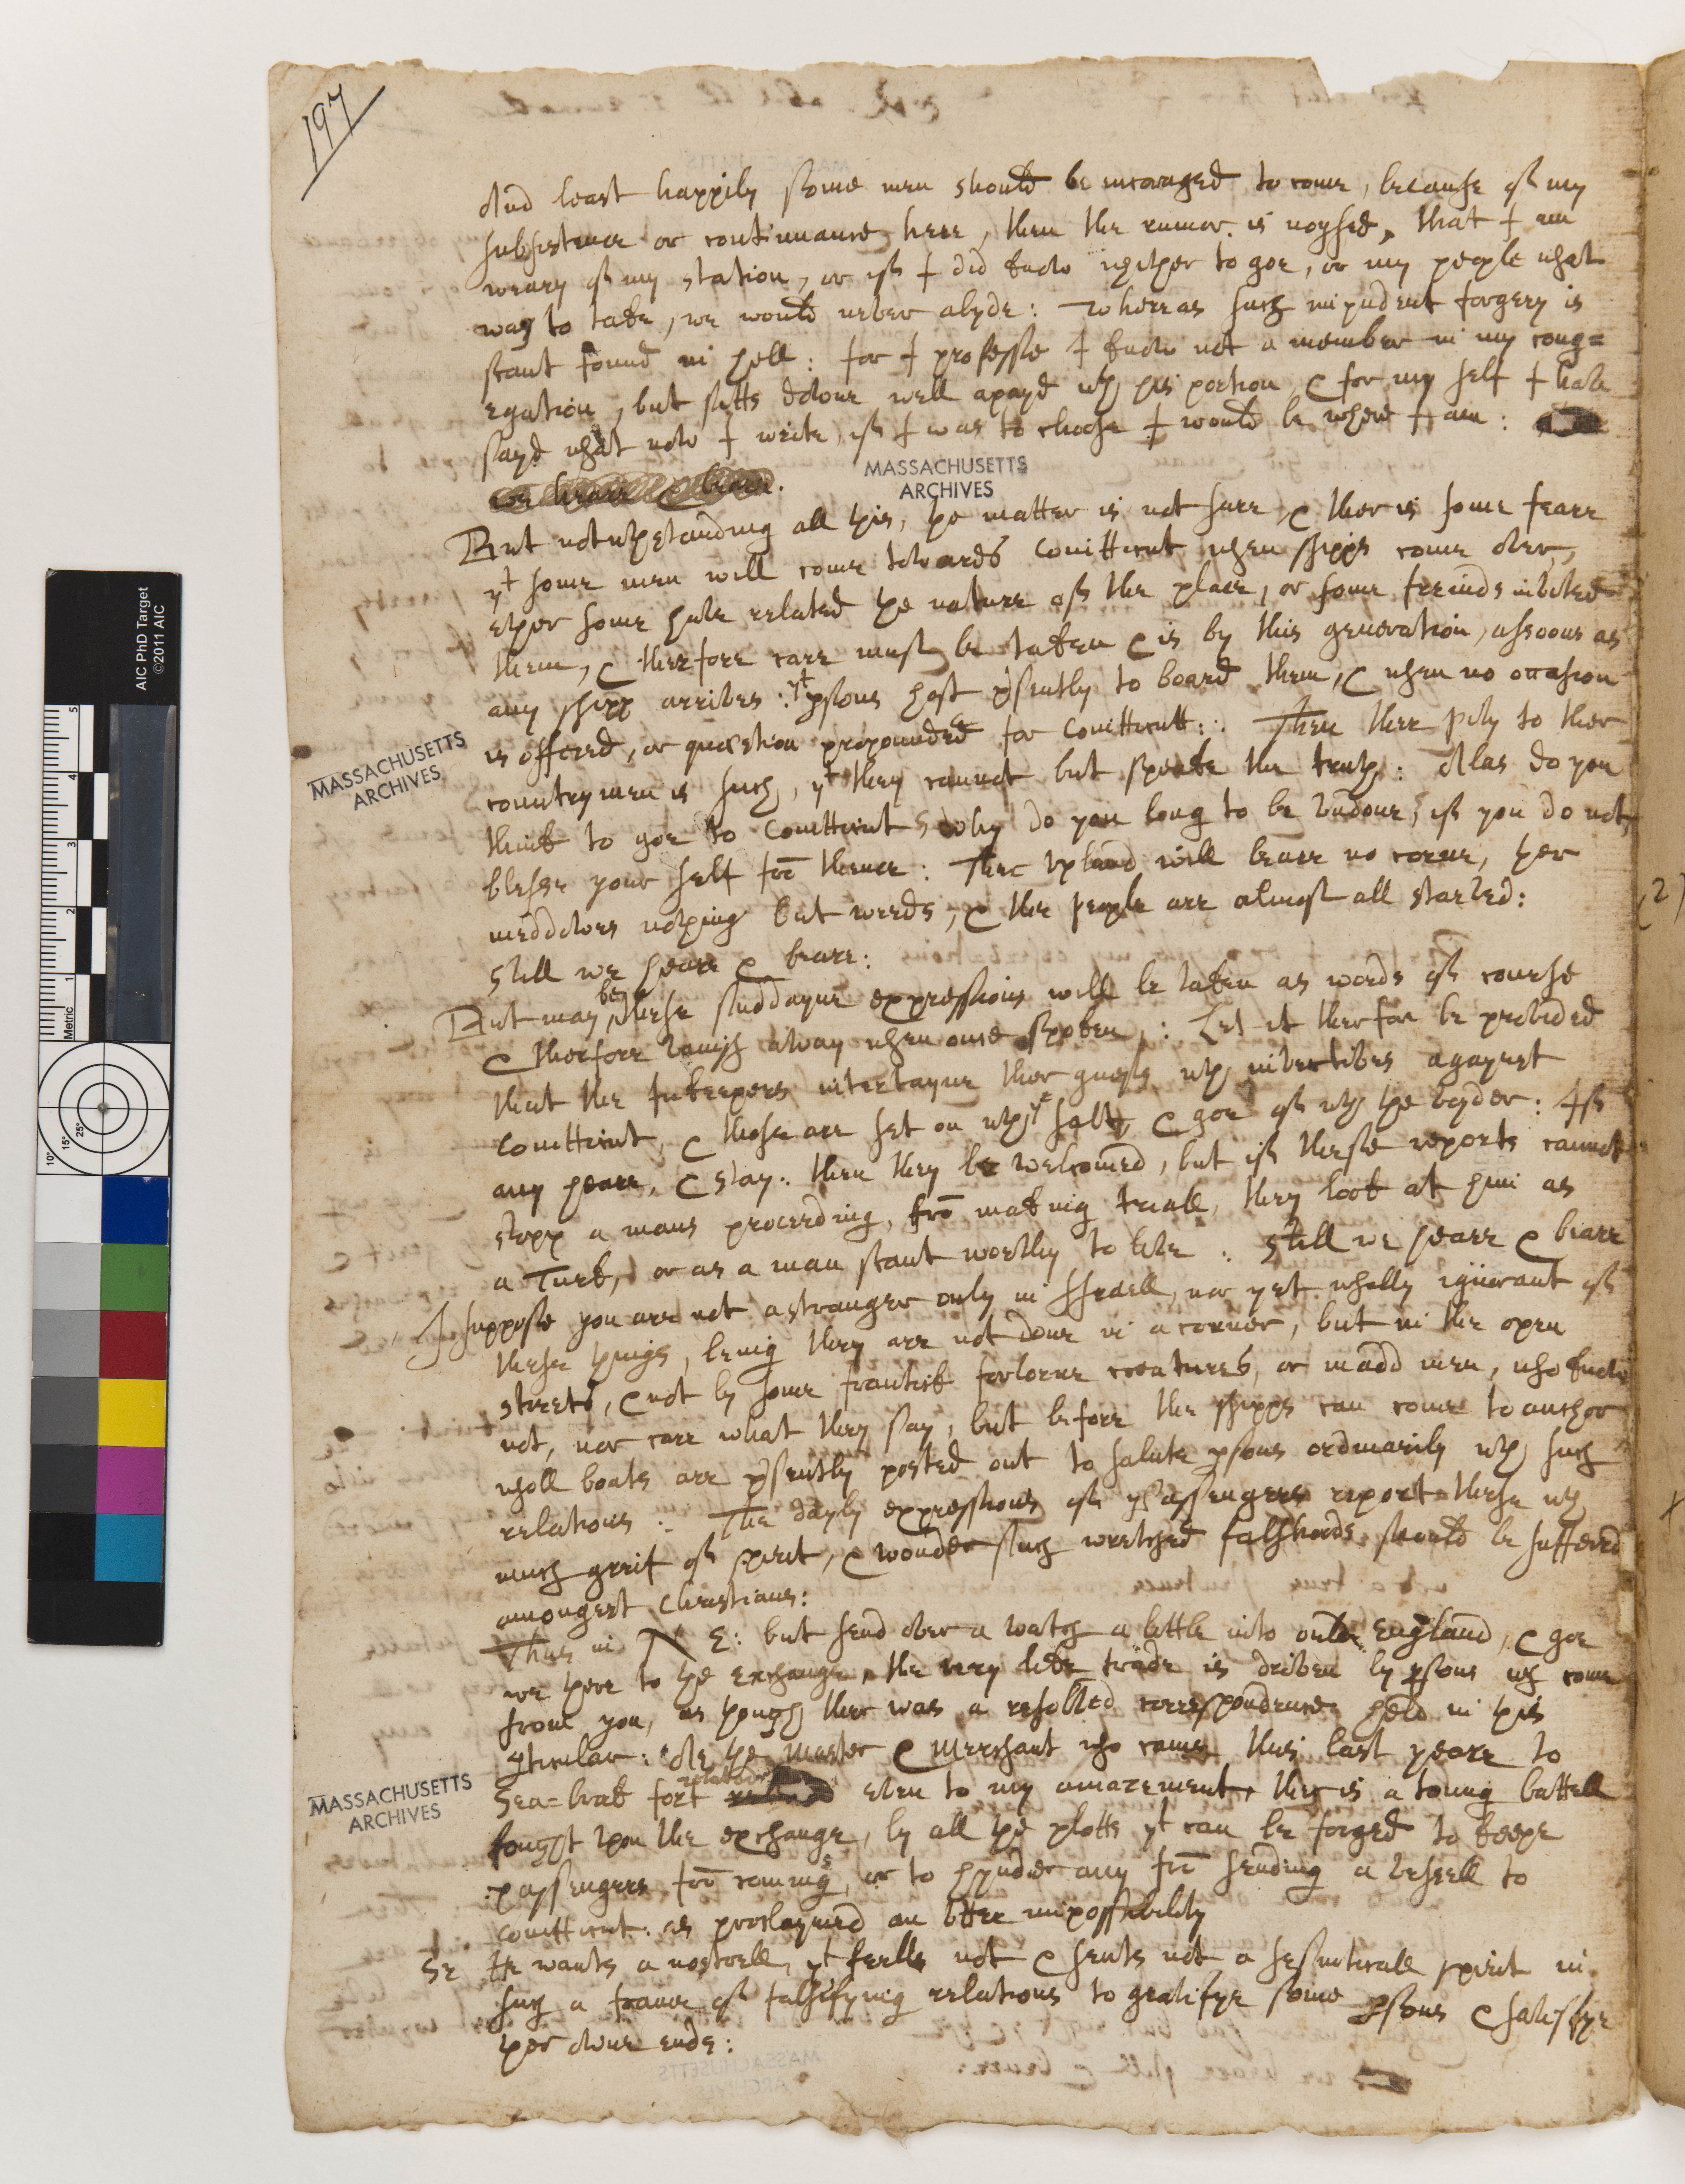 197
And least happily some men should be incoraged to come, because of my
subsistence or continuance here, then the rumor is noysed, that I am
weary of my station, or if I did know whither to goe, or my people what
way to take, we would never abyde: whereas such impudent forgery is
scant found in hell: for I professe I know not a member in my cong=
egation, but sitts downe well apayd wth his portion & for my self I have
sayd what now I write, if I was to choose I would be where I am:
we heare & beare.
MASSACHUSETTS
ARCHIVES
But notwthstanding all this, the matter is not sure, & ther is some feare
yt some men will come towards Conitticut when shipps come over,
ether some have related the nature of the place, or some freinds invited
them, & therfore care must be taken & is by this generation, assoone as
any shipp arrives: yt psons hast psently to board them, & when no occasion
is offered, or quæstion propounded for Conitticutt: Then ther pity to ther
MASSACHUSETTS
ARCHIVES
country men is such, yt they cannot but speake the truth: Alas do you
think to goe to Conitticut, why do you long to be undone, if you do not,
blesse your self fro thence: Ther upland will beare no corne, ther
meddowes nothing but weeds, & the people are almost all starved:
Still we heare & beare:
But may be these suddayne expressions will be taken as words of course
& therfore vanish away when once spoken: Let it therfore be provided
that the Inkeepers intertayne ther guests wth invectives agaynst
Conitticut, & those are set on wth ye salt, & goe of wth the voyder: If
any heare, & stay: then they be welcomed, but if these reports cannot
stopp a mans proceeding, fro making triall, they look at him as
a Turk, or as a man scant worthy to live: Still we heare & beare
I suppose you are not a stranger only in Israell, nor yet wholly ignorant of
these things, being they are not done in a corner, but in the open
streets, & not by some frantick forlorne creatures, or madd men, who know
not, nor care what they say, but before the shipps can come to anchor
wholl boats are psently posted out to salute psons ordinarily wth such
relations: The dayly expressions of passengers report these wth
much greif of spirit, & wonder such wretched falshoods should be suffered
amongest Christians:
Thus in N E: but send over a watch a little into ould England, & goe
we there to the exchange, the very like trade is driven by psons wch come
from you, as though ther was a resolved correspondence held in this
pticular: As the Master & Merchant who came this last yeare to
Sea=brook fort related even to my amazement, ther is a toung battell
MASSACHUSETTS
ARCHIVES
fought upon the exchange, by all the plotts yt can be forged to keepe
passengers fro coming, or to hynder any fro sending a vessell to
Conitticut: as proclaymed an utter impossibility
Sr He wants a nostrell, yt feells not & sents not a Jesuiticall spirit in
such a frame of falsifying relations to gratifye some psons & satisfye
ther owne ends: